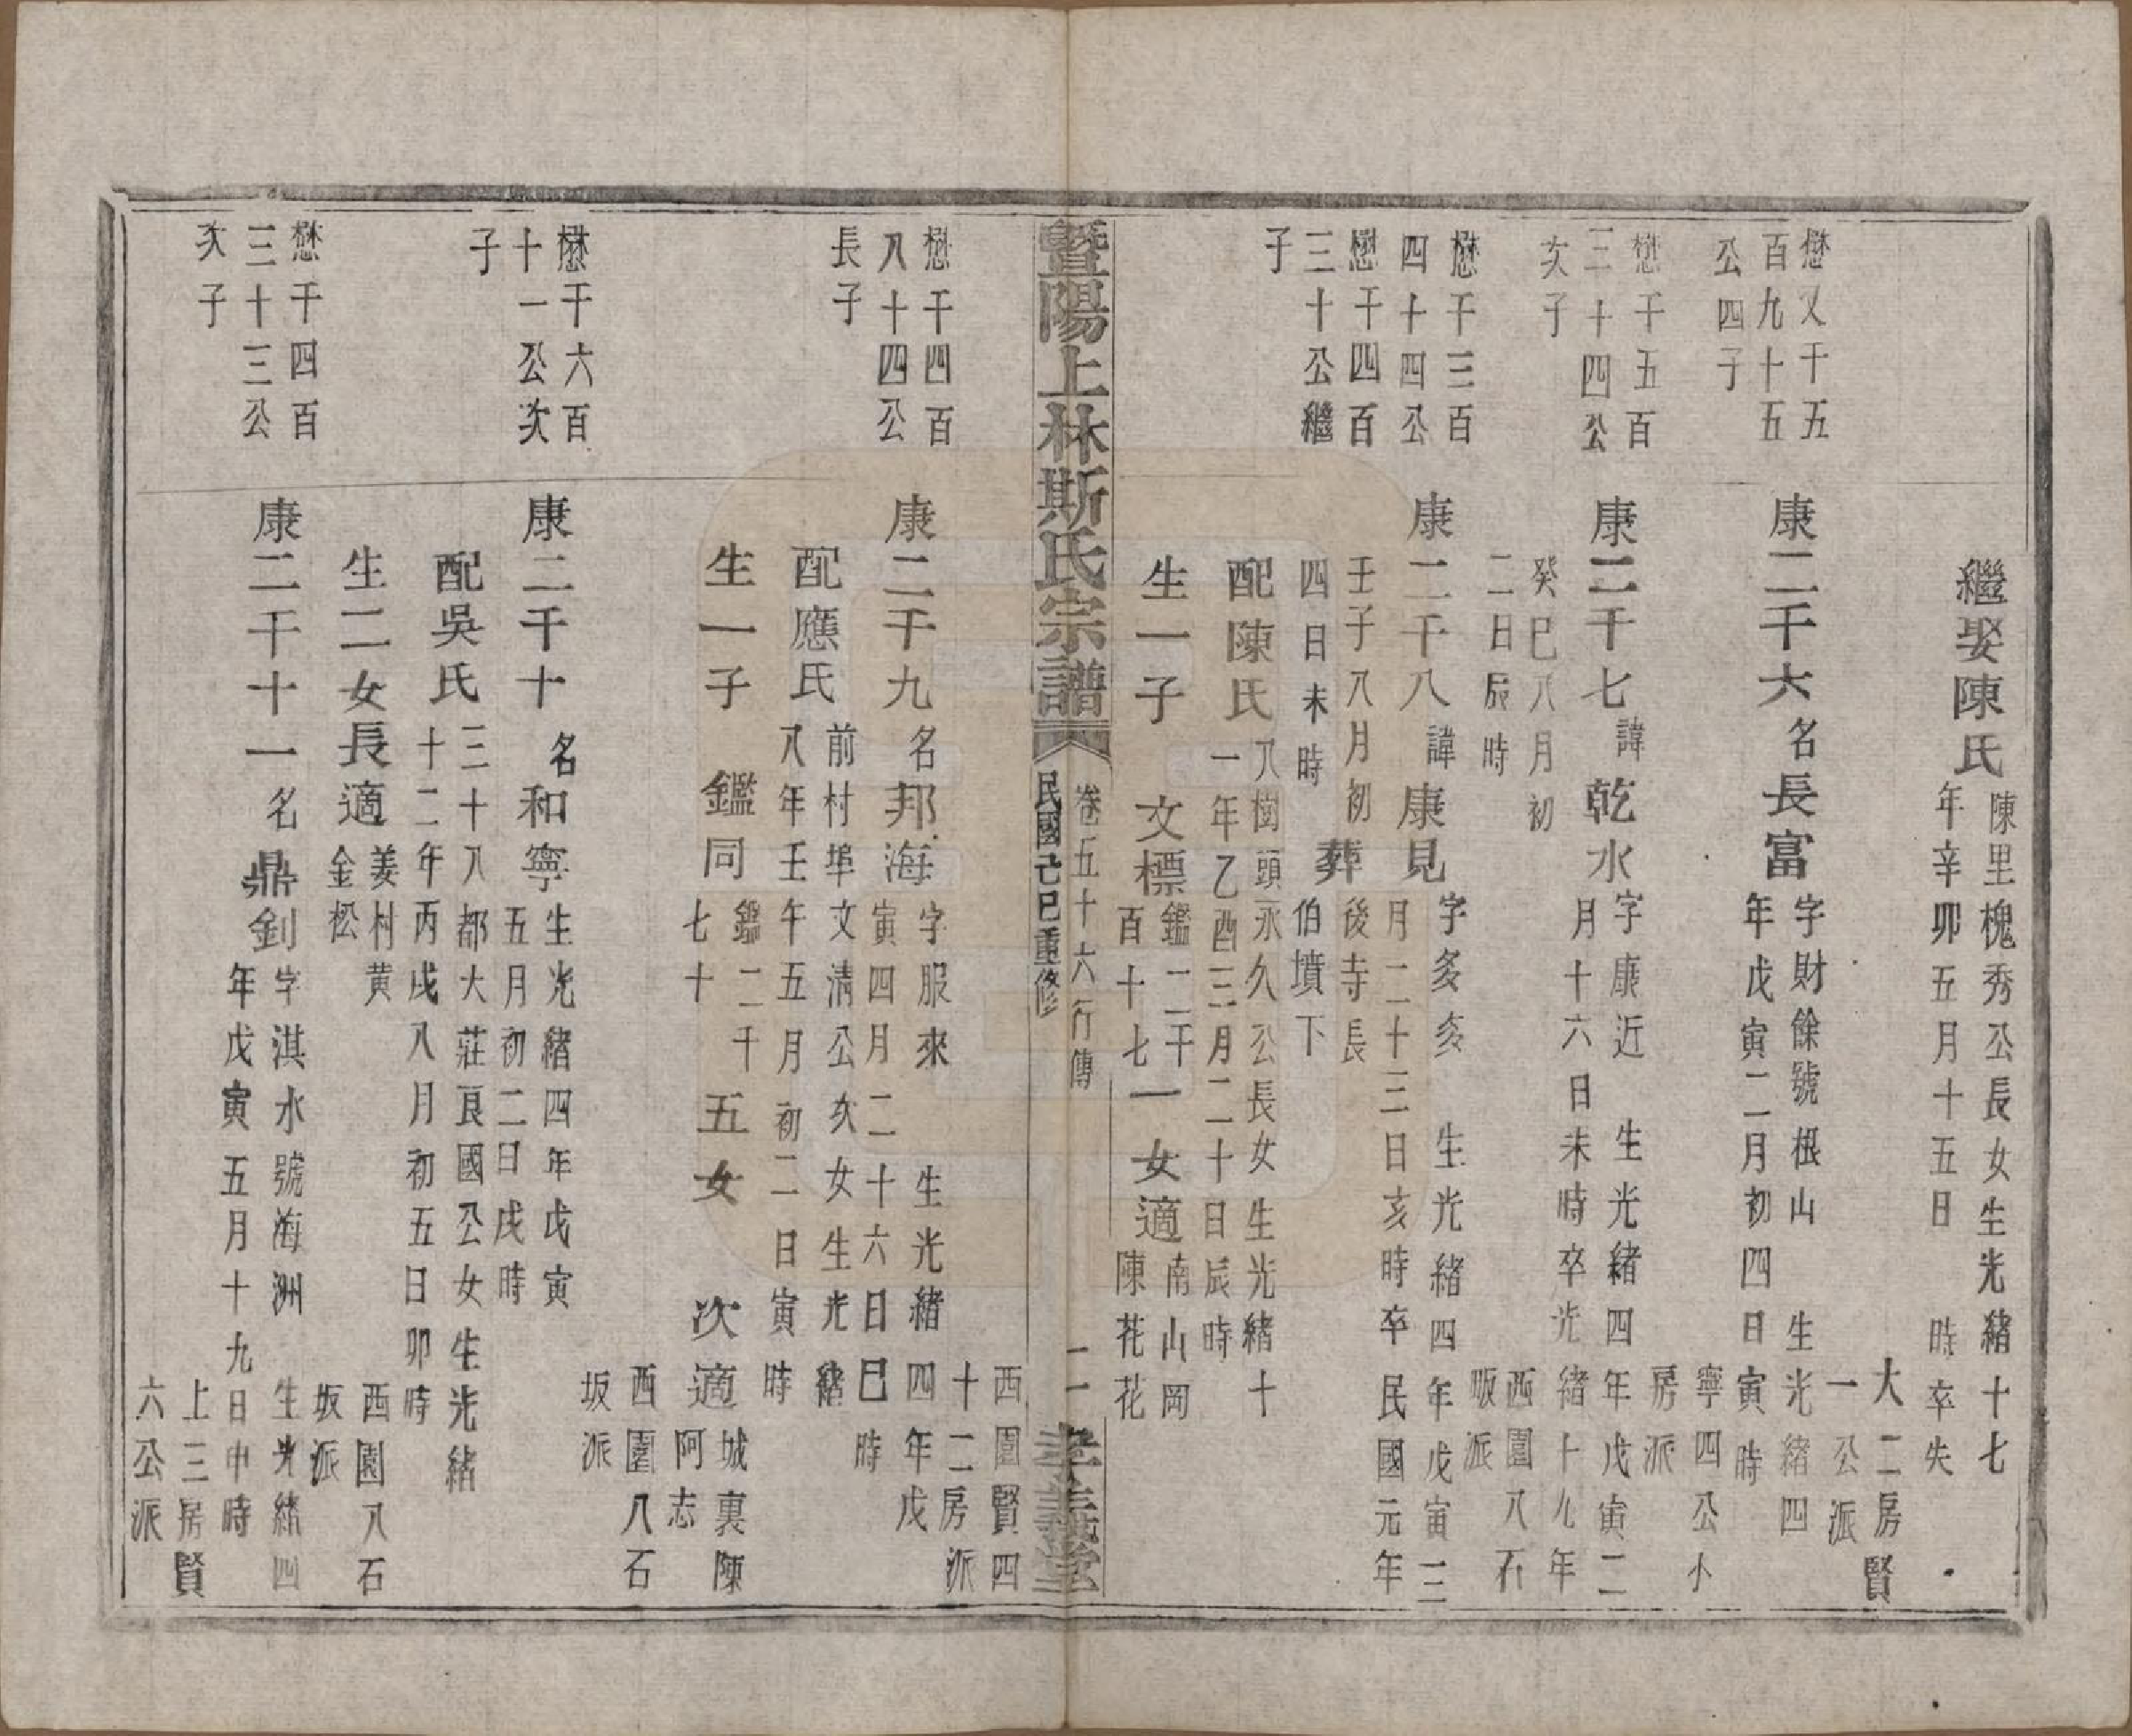 繼娶陳氏
陳里槐秀公長女生光緒十七
年辛卯五月十五日 時卒失
大二房賢
一公派
懋又千五
百九十五
公四子
康二千六名長富
字財餘號根山 生光緒四
年戊寅二月初四日寅時
寧四公小
房派
懋千五百
三十四公
次子
康二千七諱乾水
字康近 生光緒四年戊寅二
月十六日未時卒光緒十九年
癸巳八月初
二日辰時
西園八石
坂派
懋千三百
四十四公
懋千四百
三十公繼
子
康二千八諱康見
字多多 生光緒四年戊寅三
月二十三日亥時卒民國元年
壬子八月初
四日未時
葬
後寺長
伯墳下
配陳氏
八樹頭永久公長女生光緒十
一年乙酉三月二十日辰時
生一子 文標
鑑二千
百十七
一女適
南山岡
陳花花
暨陽上林斯氏宗譜
卷五十六行傳
民國己巳重修
二
孝義堂
西園賢四
十二房派
懋千四百
八十四公
長子
康二千九名邦海
字服來 生光緒四年戊
寅四月二十六日巳時
配應氏
前村埠文清公次女生光緒
八年壬午五月初二日寅時
生一子 鑑同
鑑二千
七十
五女 次適
城裏陳
阿志
西園八石
坂派
懋千六百
十一公次
子
康二千十名和寧
生光緒四年戊寅
五月初二日戌時
配吳氏
三十八都大莊良國公女生光緒
十二年丙戌八月初五日卯時
生二女長適
姜村黄
金松
西園八石
坂派
懋千四百
三十三公
次子
康二千十一名鼎釗
字淇水號海洲 生光緒四
年戊寅五月十九日申時
上三房賢
六公派